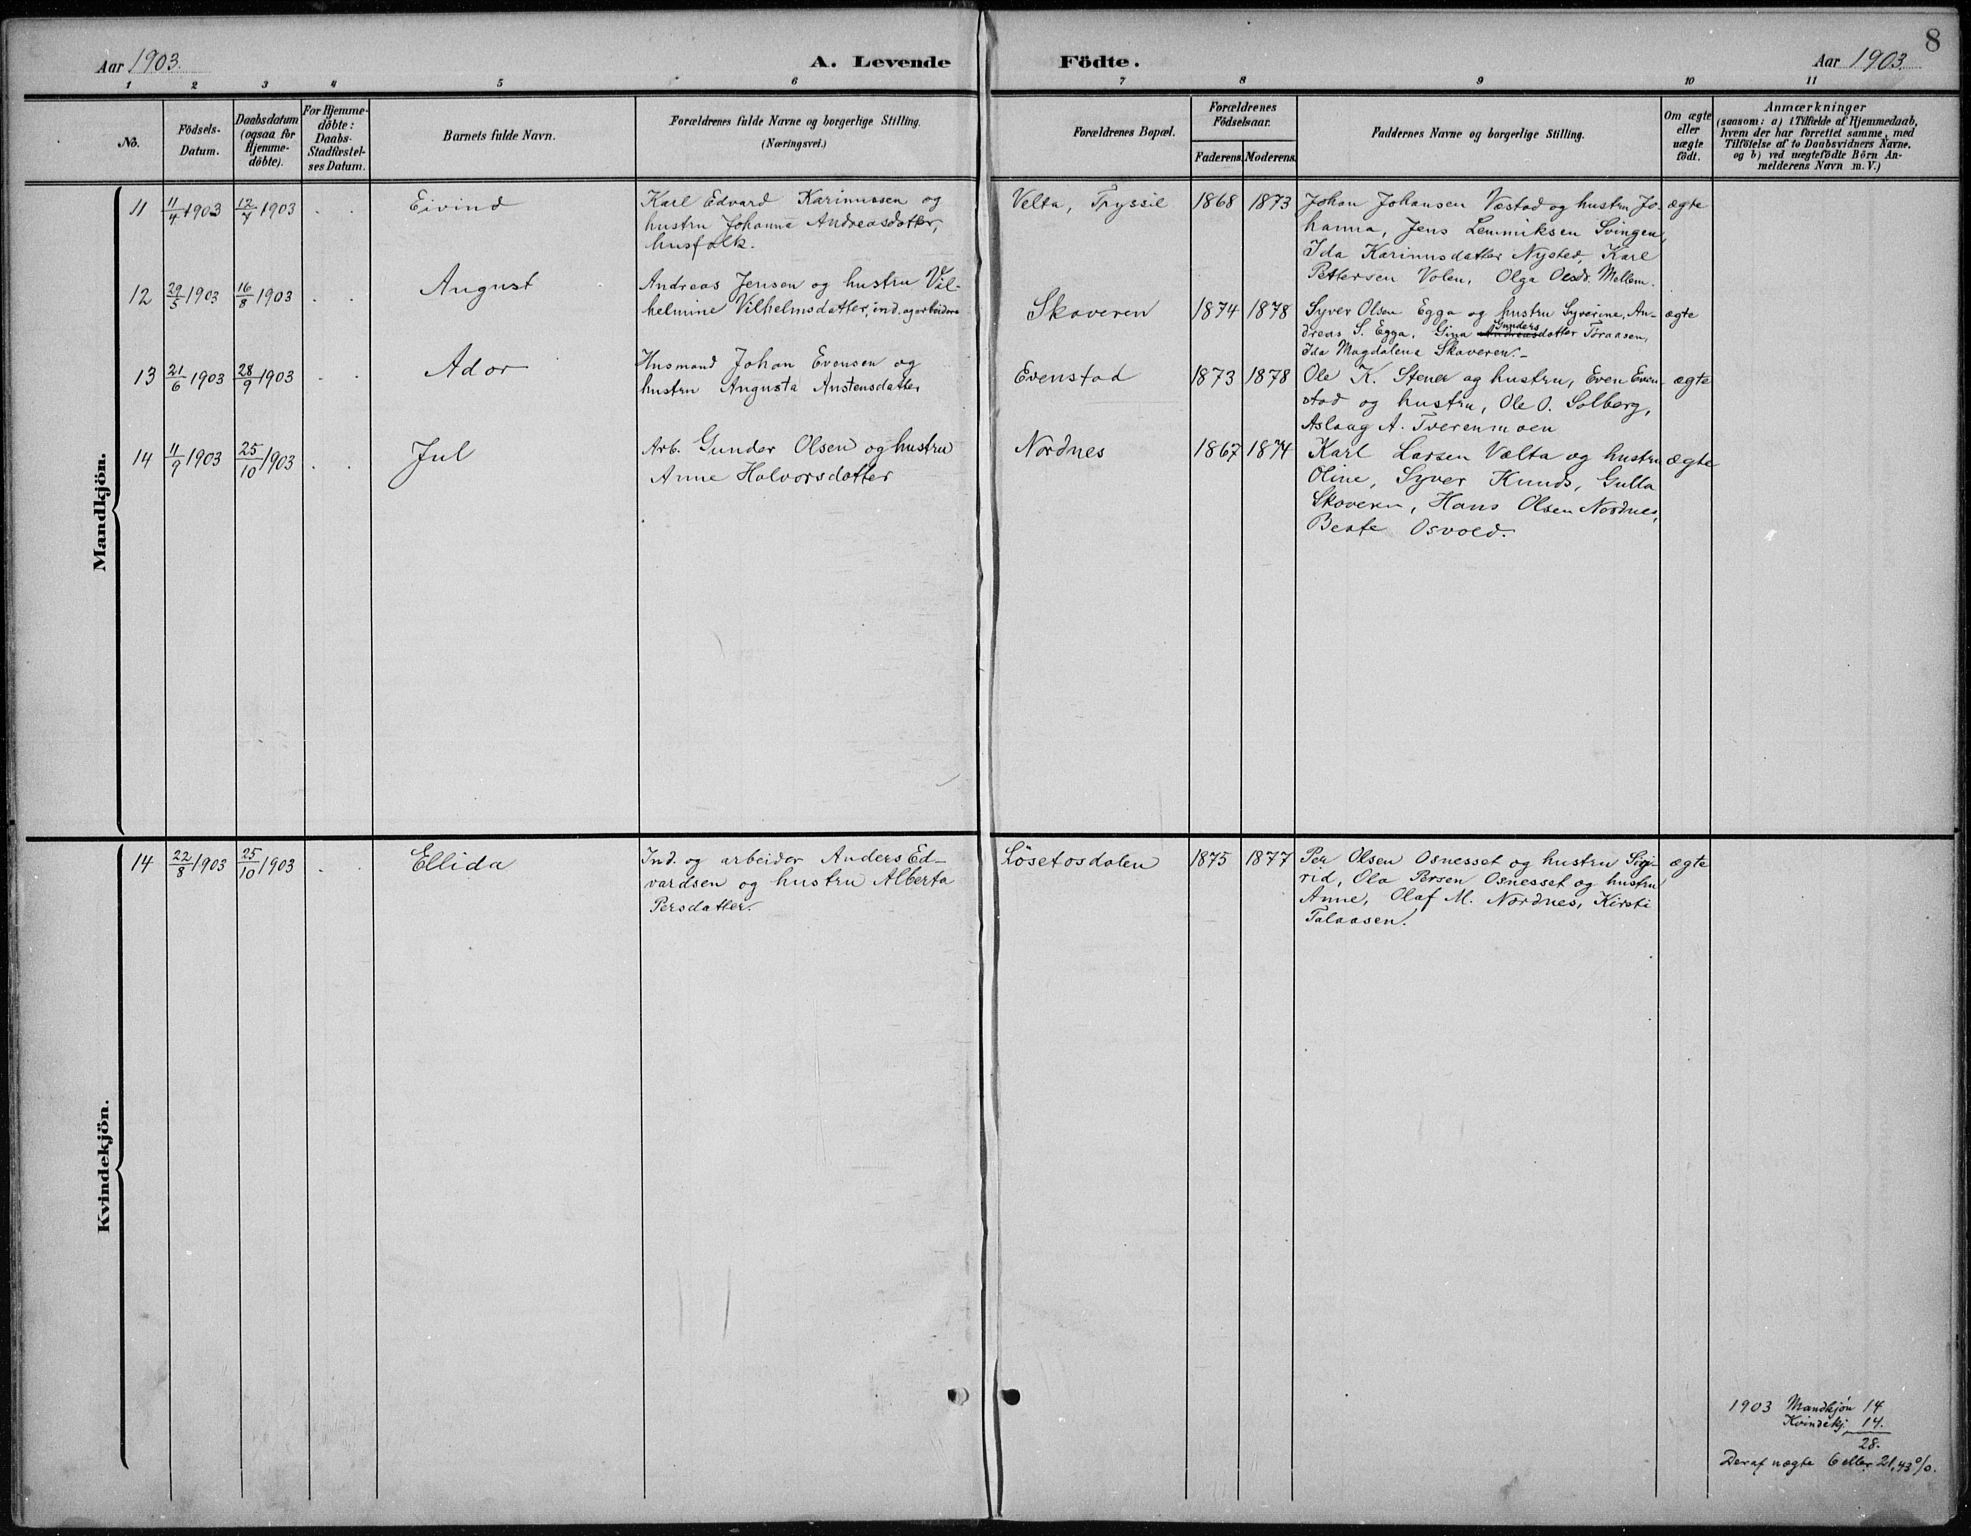 8
Aar 1903.
A. Levende Födte.
Aar 1903.
1 2 3 4 5 6 7 8 9 10 11
No.
Födsels-
Datum.
Daabsdatum
(ogsaa for
Hjemme-
döbte).
For Hjemme-
döbte:
Daabs-
Stadfæstel-
ses Datum.
Barnets fulde Navn.
Forældrenes fulde Navne og borgerlige Stilling.
(Næringsvei.)
Forældrenes Bopæl.
Forældrenes
Födselsaar.
Faderens. Moderens.
Faddernes Navne og borgerlige Stilling.
Om ægte
eller
uægte
födt.
Anmærkninger
(saasom: a) i Tilfælde af Hjemmedaab,
hvem der har forrettet samme, med
Tilföielse af to Daabsvidners Navne.
og b) ved uægtefödte Börn An-
melderens Navn m. V.)
Mandkjön.
11 11/4 1903 12/7 1903 . . Eivind
Karl Edvard Karinussen og
hustru Johanna Andreasdatter,
husfolk.
Velta, Tryssil 1868 1873
Johan Johansen Væstad og hustru Jo-
hanna, Jens Lemmiksen Svingen,
Ida Karinusdatter Nysted, Karl
Pettersen Volen, Olga Olsdr. Mellem.
ægte
12 29/5 1903 16/8 1903 . . August
Andreas Jensen og hustru Vil-
helmine Vilhelmsdatter, ind. og arbeidere
Skaveren 1874 1878
Syver Olsen Egga og hustru Syverine, An-
dreas S. Egga, Gina Andreasdatter Toraasen,
Gunders
Ida Magdalena Skaveren.
ægte
13 21/6 1903 28/9 1903 . . Ador
Husmand Johan Evensen og
hustru Augusta Anstensdatter
Evenstad 1873 1878
Ole K. Stener og hustru, Even Even-
stad og hustru, Ole O. Solberg,
Aslaug A. Tverenmoen
ægte
14 11/9 1903 25/10 1903 . . Jul
Arb. Gunder Olsen og hustru
Anne Halvorsdatter
Nordnes 1867 1874
Karl Larsen Vælta og hustru
Oline, Syver Knuds, Gulla
Skaveren, Hans Olsen Nordnes,
Beate Osvold.
ægte
Kvindekjön.
14 22/8 1903 25/10 1903 . . Ellida
Ind. og arbeider Anders Ed-
vardsen og hustru Alberta
Persdatter.
Lösetosdalen 1875 1877
Per Olsen Osnesset og hustru Sig-
rid, Ola Persen Osnesset og hustru
Anne, Olaf M. Nordnes, Kirsti
Talaasen.
ægte
1903 Mandkjön 14
Kvindekj. 14.
28.
Deraf uægte 6 eller 21,43 %.